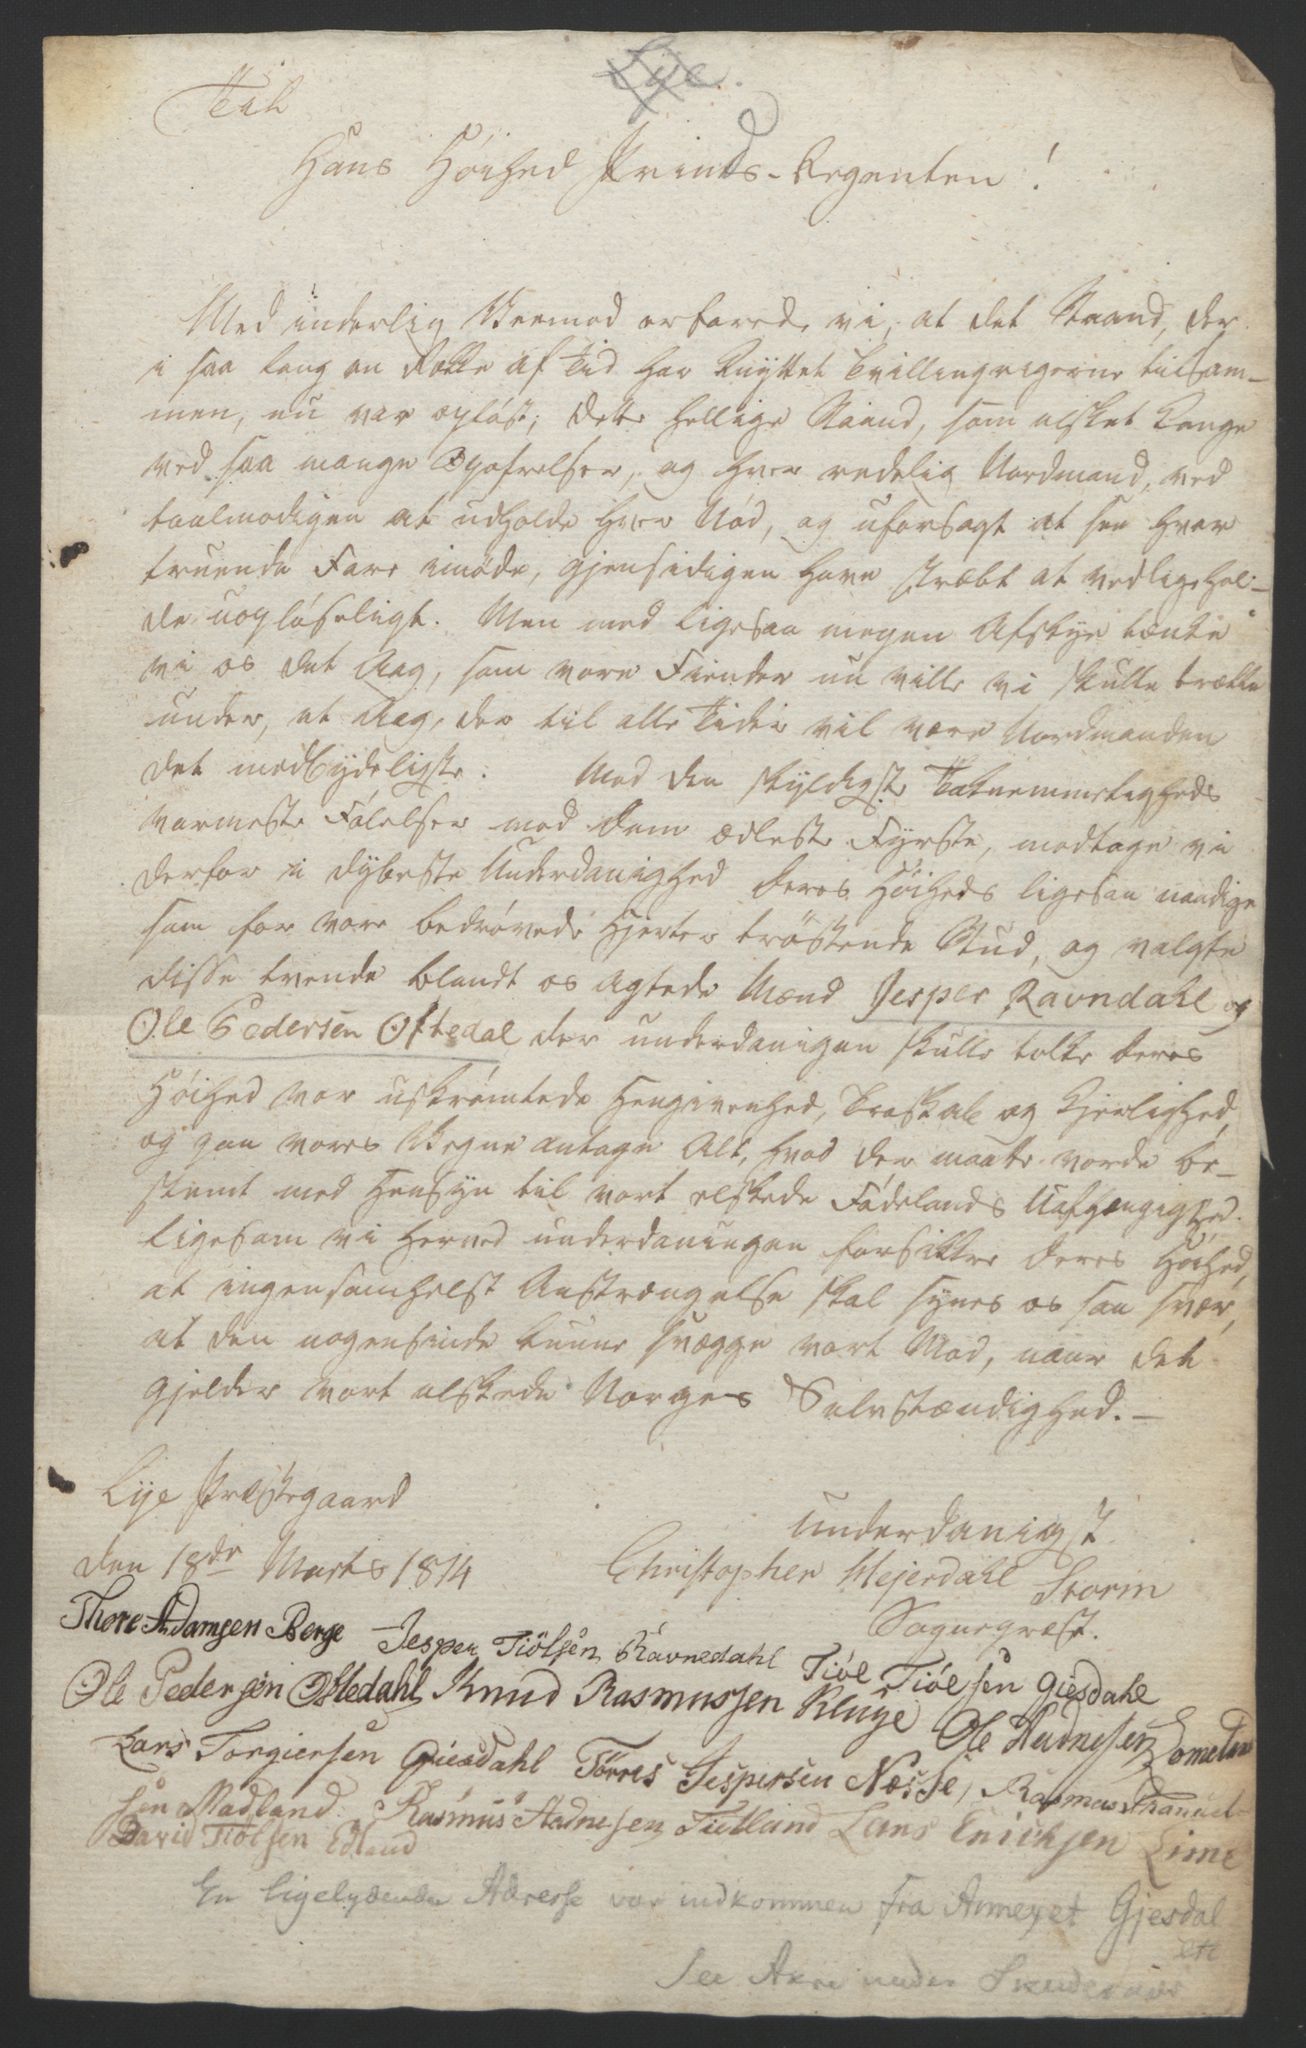 Lye.
Til
Hans Høihed Prinds-Regenten!
Med inderlig Veemod erfarede vi, at det Baand, der
i saa lang en Række af Tid har knyttet Tvillingrigerne tilsam-
men, nu var opløst; dette hellige Baand, som elsket Konge
ved saa mange Opofrelser, og hver redelig Nordmand, ved
taalmodigen at udholde hver Nød, og uforsagt at see hver
truende Fare imøde, gjensidigen have stræbt at vedligehol-
de uopløseligt. Men med ligesaa megen Afskye tænke
vi os det Aag, som vore Fiender nu ville vi skulle trælle
under, et Aag, der til alle Tider vil være Nordmanden
det modbydeligste. Med den skyldigste Taknemmeligheds
varmeste Følelser mod Dem ædleste Fyrste, modtage vi
derfor i dybeste Underdanighed Deres Høiheds ligesaa naadige
som for vore bedrøvede Hjerter trøstende Bud, og valgte
disse tvende blandt os agtede Mænd Jesper Ravndahl og
Ole Pedersen Oftedal der underdanigen skulle tolke Deres
Høihed vor uskrømtede Hengivenhed, Troskab og Kjerlighed,
og paa vores Vegne antage Alt, hvad der maatte vorde be-
stemt med Hensyn til vort elskede Fødelands Uafhængighed.
ligesom vi herved underdanigen forsikkre Deres Høihed,
at ingensomhelst Anstrængelse skal synes os saa svær,
at den nogensinde kunne svække vort Mod, naar det
gjelder vort elskede Norges Selvstændighed.-
Lye Præstegaard
den 18de Marts 1814
underdanigst
Christopher Mejerdahl Storm
Sogneprest.
Thore Adamsen Berge Jesper Tiølsen Ravnedahl Tiøl Tiølsen Giesdahl
Ole Pedersen Oftedahl Knud Rasmussen Kluge Ole Hadnesen Lomeland
Lars Torgiersen Giesdahl Tørres Jespersen Næsse, Rasmus
sen Madland. Rasmus Aadnesen Tietland Lars Erichsen Lime
David Tiølsen Edland
En ligelydende Adresse var indkommen fra Annexet Gjesdal
etc
See Akre under Skudenæs